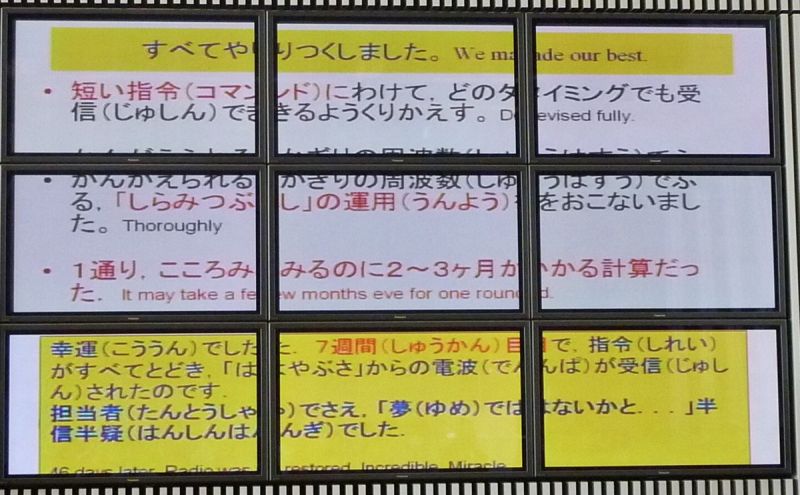 すべてやりつくしました。We made our best.
• 短い指令(コマンド)にわけて，どのタイミングでも受
信(じゅしん)できるようくりかえす。Devised fully.
• かんがえられるかぎりの周波数(しゅうはすう)でふ
る，「しらみつぶし」の運用(うんよう)をおこないまし
た。Thoroughly
• １通り，こころみるのに２～３ヶ月かかる計算だっ
た．It may take a few months eve for one round.
幸運(こううん)でした．７週間(しゅうかん)目で，指令(しれい)
がすべてとどき，「はやぶさ」からの電波(でんぱ)が受信(じゅし
ん)されたのです．
担当者(たんとうしゃ)でさえ，「夢(ゆめ)ではないかと．．．」半
信半疑(はんしんはんぎ)でした．
46 days later, Radio was restored. Incredible. Miracle